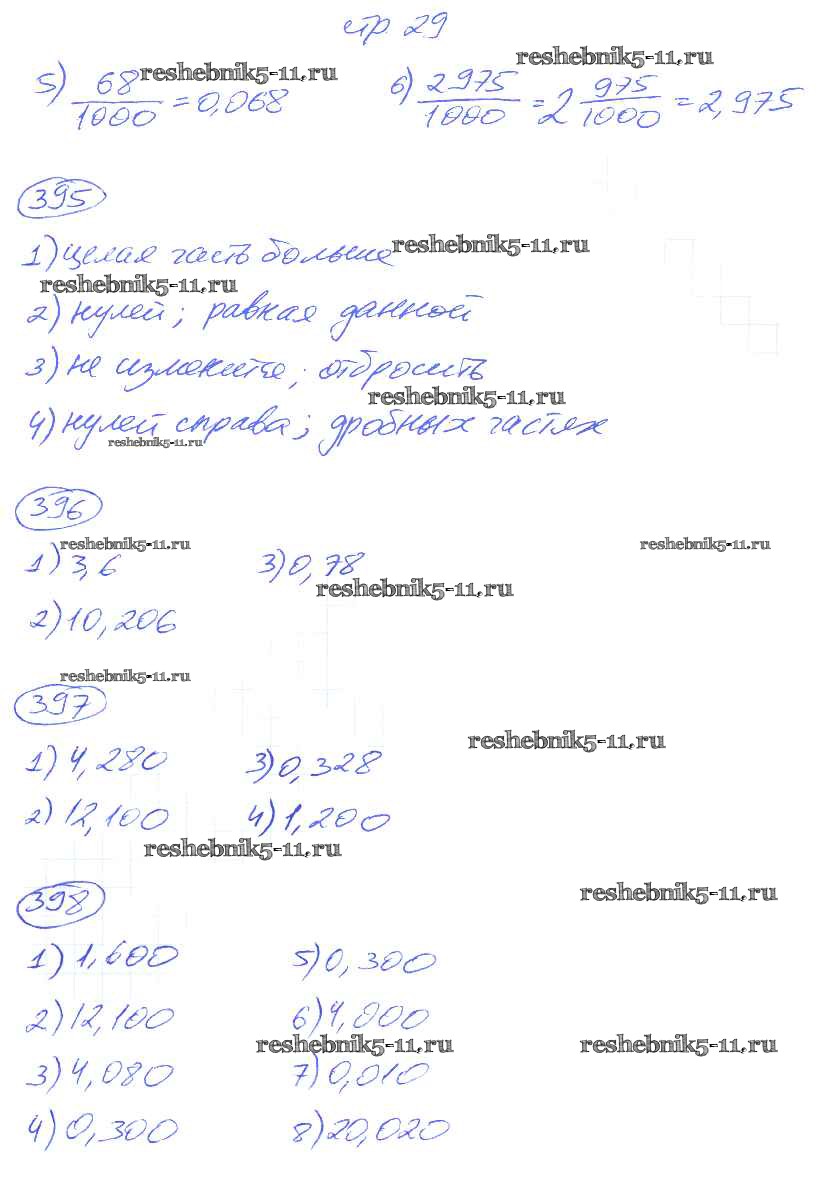 стр. 29
reshebnik5-11.ru
5) 68/1000 = 0,068 reshebnik5-11.ru 6) 2975/1000 = 2 975/1000 = 2,975
395
1) целая часть больше reshebnik5-11.ru
reshebnik5-11.ru
2) нулей; равная данной
3) не изменится; отбросить
reshebnik5-11.ru
4) нулей справа; дробных частях
reshebnik5-11.ru
396
reshebnik5-11.ru reshebnik5-11.ru
1) 3,6 3) 0,78
reshebnik5-11.ru
2) 10,206
reshebnik5-11.ru
397
reshebnik5-11.ru
1) 4,280 3) 0,328
2) 12,100 4) 1,200
reshebnik5-11.ru
398 reshebnik5-11.ru
1) 1,600 5) 0,300
2) 12,100 6) 4,000
reshebnik5-11.ru reshebnik5-11.ru
3) 4,080 7) 0,010
4) 0,300 8) 20,020